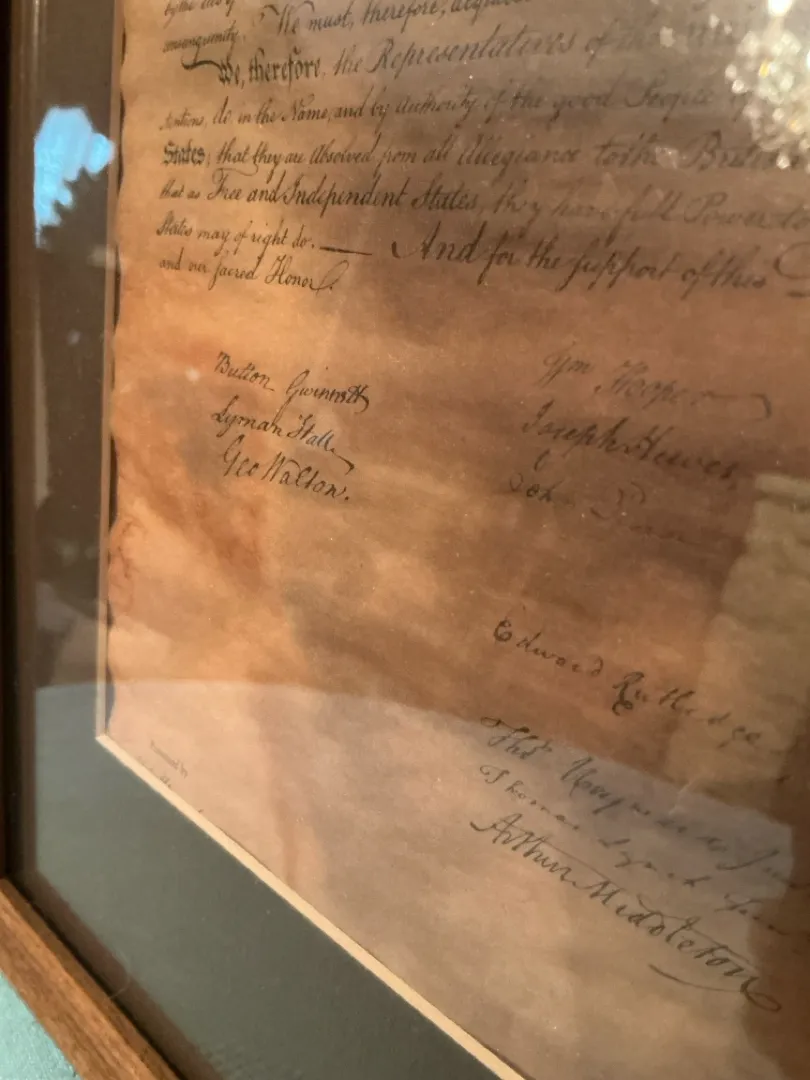 by the
consanguinity. We must, therefore,
We, therefore, the Representatives of the
tentions, do, in the Name, and by Authority of the good People of
States; that they are Absolved from all Allegiance to the British
that as Free and Independent States, they have full Power to
States may of right do. — And for the support of this
and our sacred Honor.
Button Gwinnett
Lyman Hall
Geo Walton.
Wm Hooper
Joseph Hewes
John Penn
Edward Rutledge
Thos Heyward Junr
Thomas Lynch Junr
Arthur Middleton